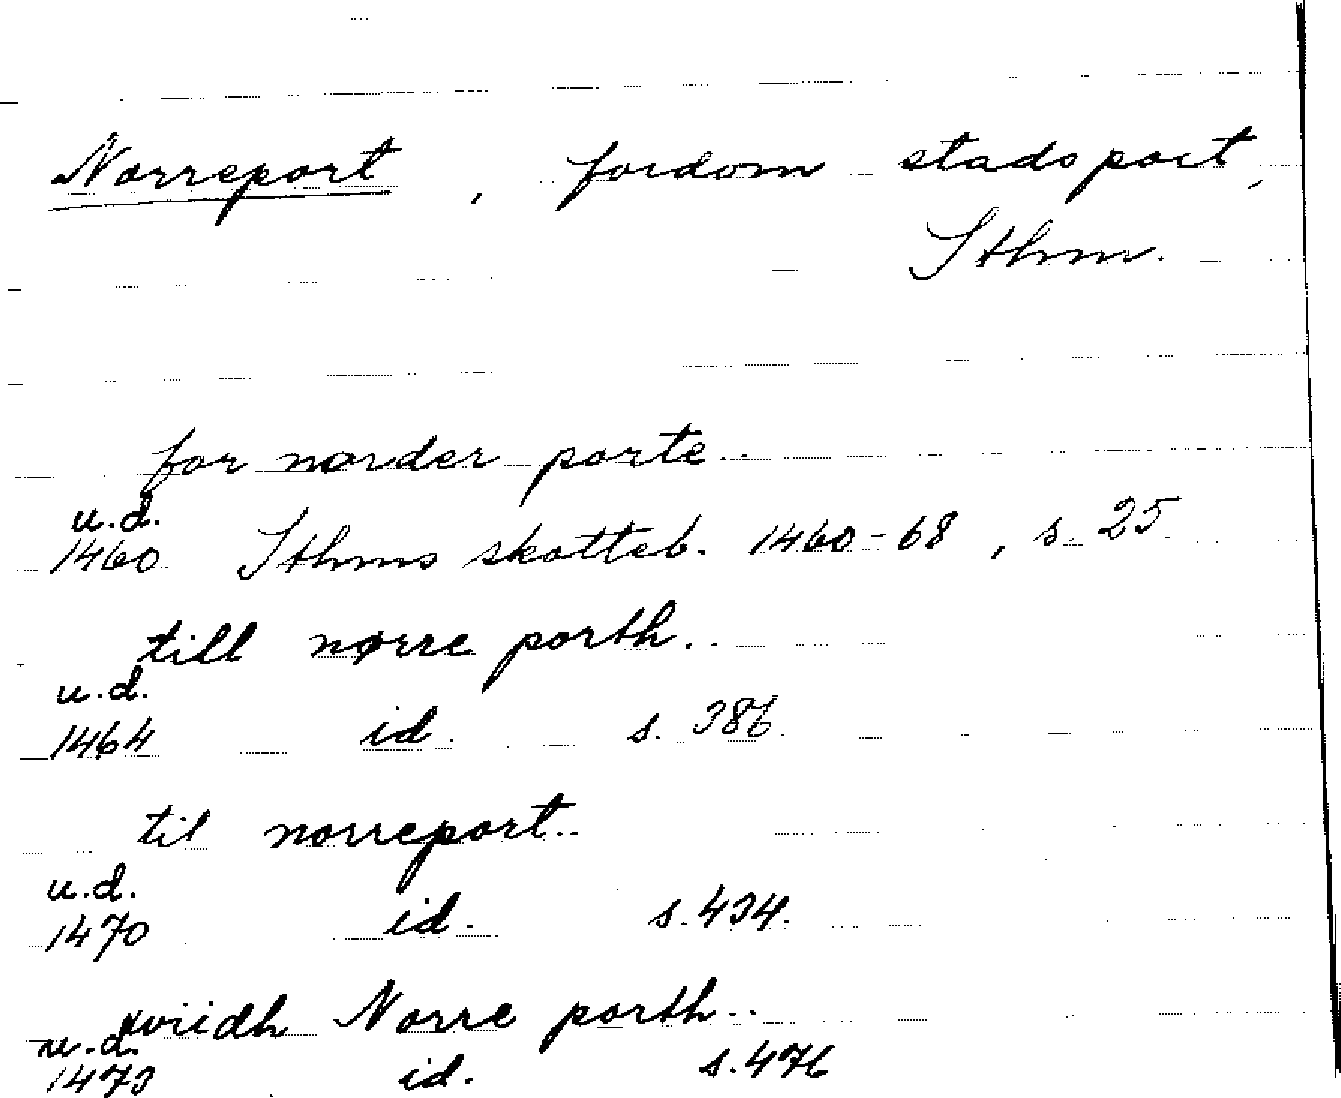 Norreport, fordom stadsport,
Sthm.
for norder porte..
u.d.
1460 Sthms skatteb. 1460-68, s. 25
till norre porth..
u.d.
1464 id. s. 386.
til norreport..
u.d.
1470 id. s. 434.
wiidh Norre porth..
u.d.
1473 id. s. 476